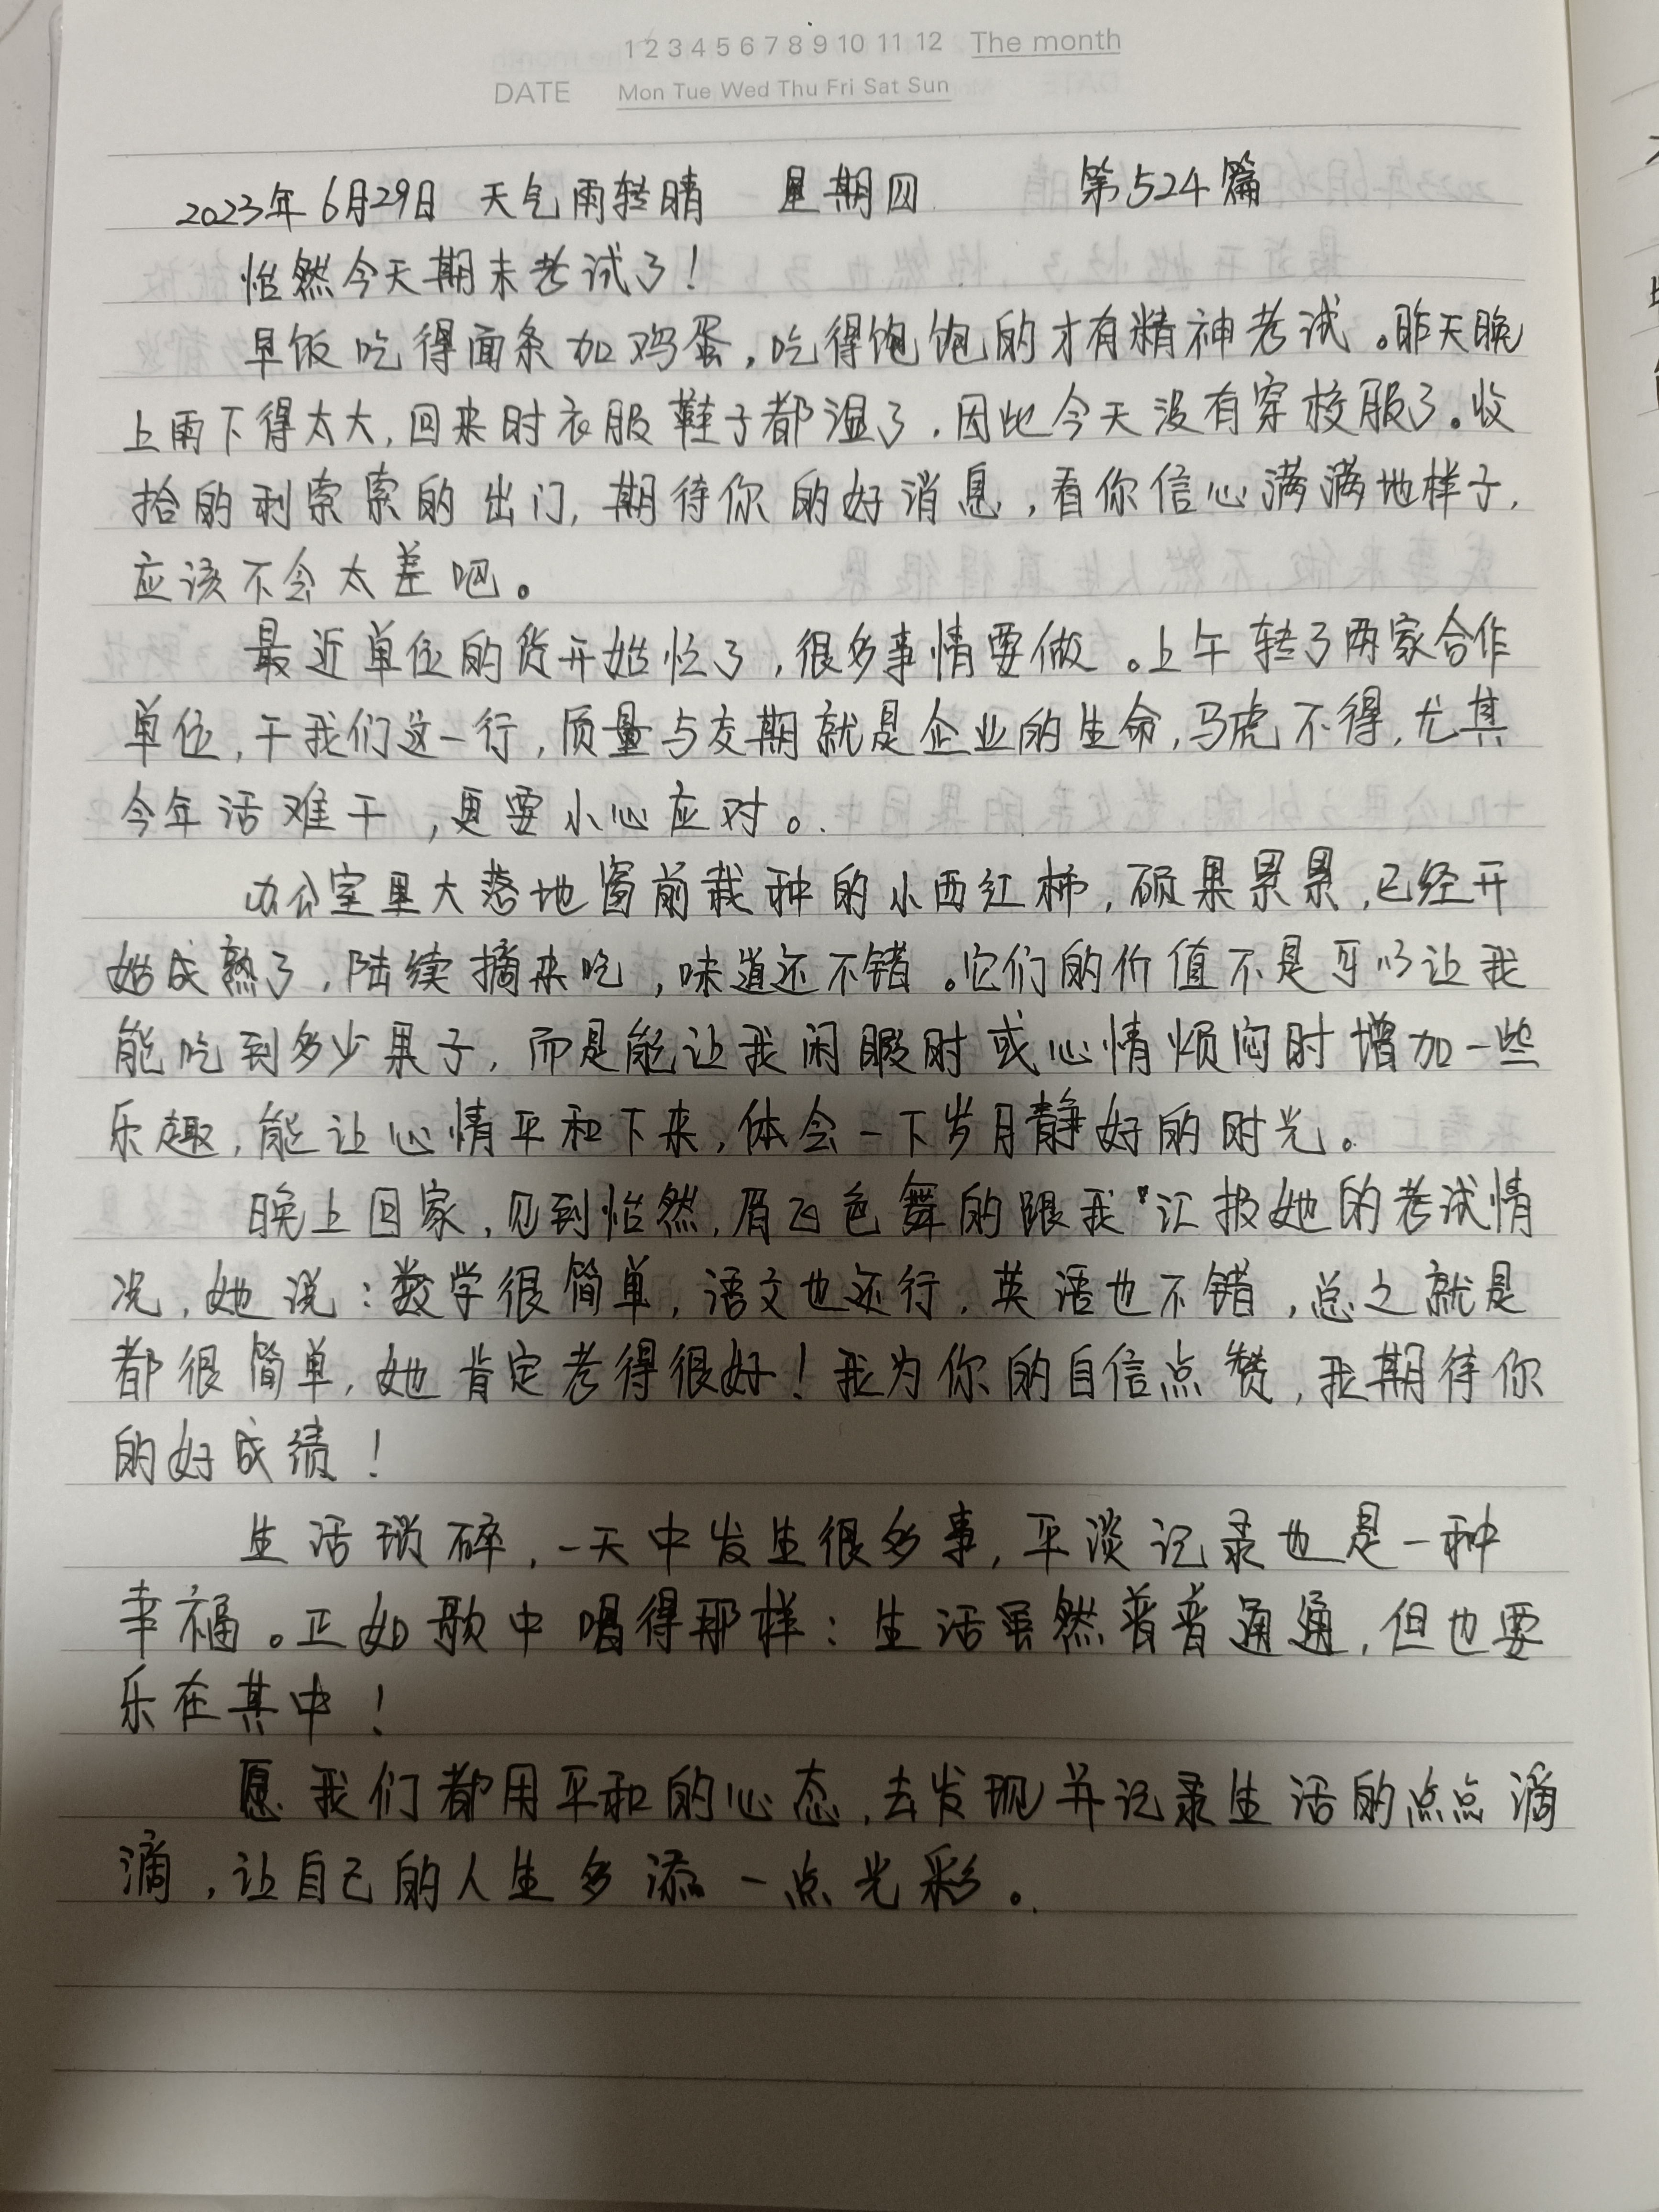 1 2 3 4 5 6 7 8 9 10 11 12 The month
DATE Mon Tue Wed Thu Fri Sat Sun
2023年6月29日 天气雨转晴 星期四 第524篇
怡然今天期末考试了!
早饭吃得面条加鸡蛋,吃得饱饱的才有精神考试。昨天晚
上雨下得太大,回来时衣服鞋子都湿了,因此今天没有穿校服了。收
拾的利索索的出门,期待你的好消息,看你信心满满地样子,
应该不会太差吧。
最近单位的货开始忙了,很多事情要做。上午转了两家合作
单位,干我们这一行,质量与交期就是企业的生命,马虎不得,尤其
今年活难干,更要小心应对。
办公室里大落地窗前栽种的小西红柿,硕果累累,已经开
始成熟了,陆续摘来吃,味道还不错。它们的价值不是可以让我
能吃到多少果子,而是能让我闲暇时或心情烦闷时增加一些
乐趣,能让心情平和下来,体会一下岁月静好的时光。
晚上回家,见到怡然,眉飞色舞的跟我汇报她的考试情
况,她说:数学很简单,语文也还行,英语也不错,总之就是
都很简单,她肯定考得很好!我为你的自信点赞,我期待你
的好成绩!
生活琐碎,一天中发生很多事,平淡记录也是一种
幸福。正如歌中唱得那样:生活虽然普普通通,但也要
乐在其中!
愿我们都用平和的心态,去发现并记录生活的点点滴
滴,让自己的人生多添一点光彩。